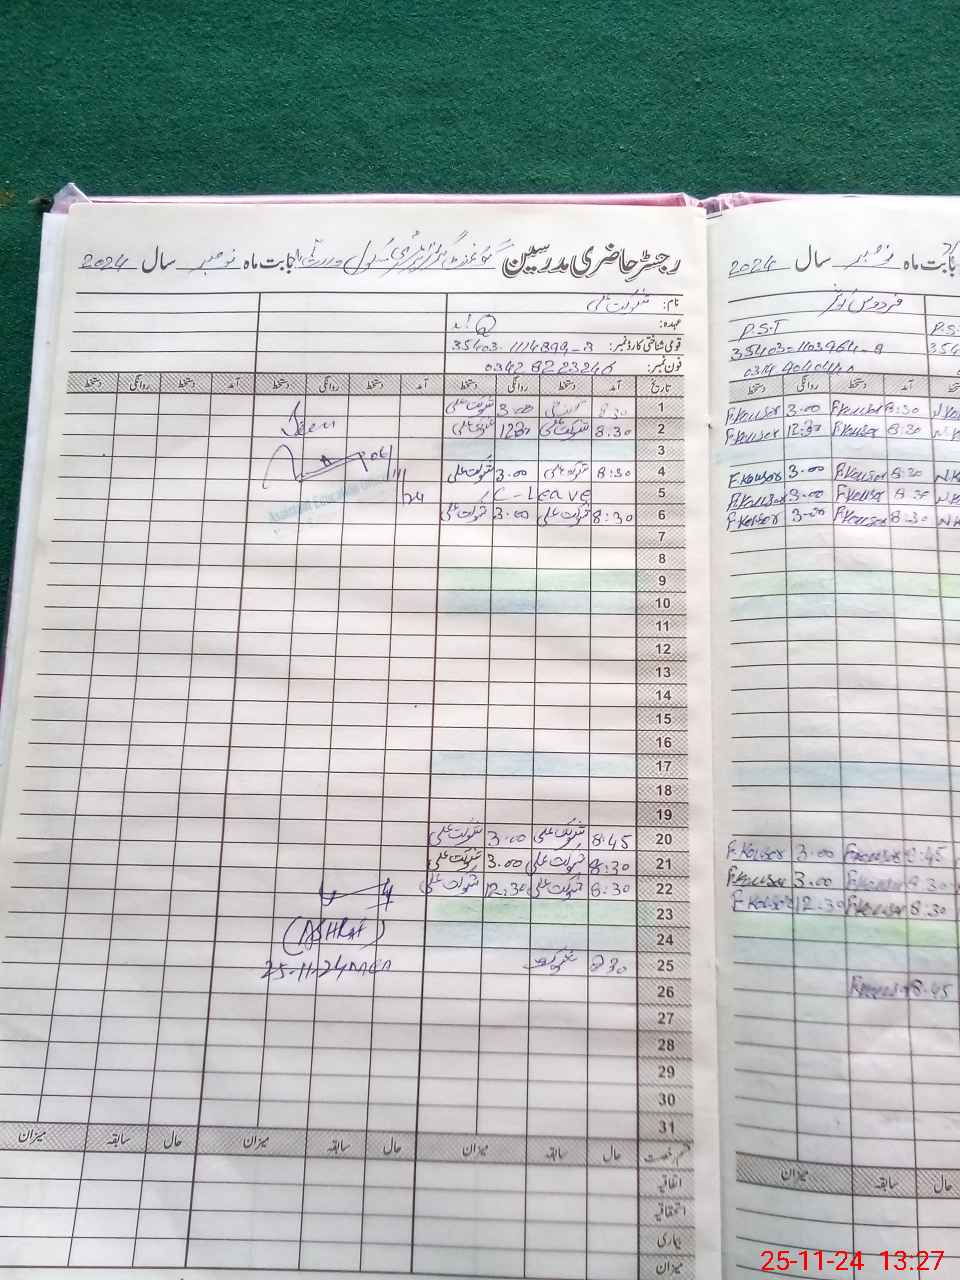 رجسٹر حاضری مدرسین گورنمنٹ گرلز پرائمری سکول بابت ماہ نومبر سال 2024
نام: شوکت علی
عہدہ:
قومی شناختی کارڈ نمبر: 35403-1114399-3
فون نمبر: 0342 8223246
تاریخ آمد دستخط روانگی دستخط آمد دستخط روانگی دستخط آمد دستخط روانگی دستخط
1 8:30 شوکت علی 3:00 شوکت علی
2 8:30 شوکت علی 12:30 شوکت علی
Seen
3
4 8:30 شوکت علی 3.00 شوکت علی
06/11/24
5 C-Leave
Assistant Education
6 8:30 شوکت علی 3:00 شوکت علی
7
8
9
10
11
12
13
14
15
16
17
18
19
20 8:45 شوکت علی 3.00 شوکت علی
21 8:30 شوکت علی 3.00 شوکت علی
22 8:30 شوکت علی 12:30 شوکت علی
23
24
(ASHRAF)
25 8:30 شوکت
25-11-24 MEA
26
27
28
29
30
31
قسم رخصت حال سابقہ میزان حال سابقہ میزان حال سابقہ میزان
اتفاقیہ
استحقاقیہ
بیماری
میزان
بابت ماہ نومبر سال 2024
فردوس کوثر
P.S.T P.S
35403-1103964-8 354
0314
آمد دستخط روانگی دستخط
8:30 F.Kousor 3.00 F.Kousor
8:30 F.Kousor 12:30 F.Kousor
8:30 F.Kousor 3.00 F.Kousor
8:30 F.Kousor 3.00 F.Kousor
8:30 F.Kousor 3.00 F.Kousor
8:45 F.Kousor 3.00 F.Kousor
8:30 F.Kousor 3.00 F.Kousor
8:30 F.Kousor 12.30 F.Kousor
8.45 F.Kousor
حال سابقہ میزان
25-11-24 13:27